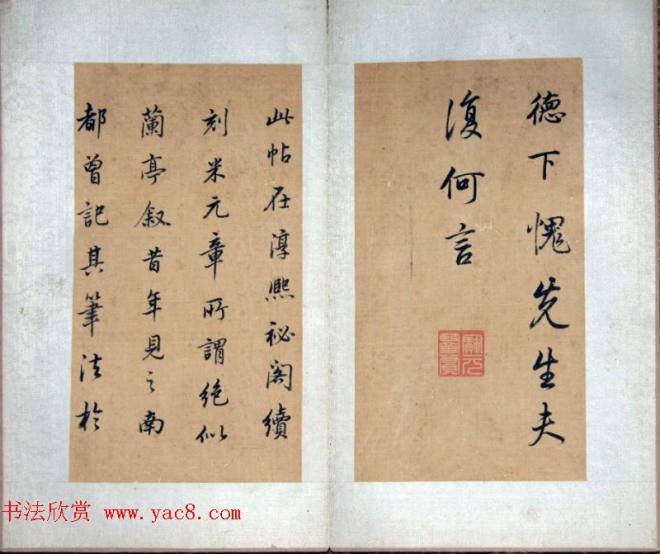 德下愧先生夫
復何言
此帖在淳熙祕阁續
刻米元章所謂絶似
蘭亭叙昔年見之南
都曾記其筆法於
书法欣赏 www.yac8.com